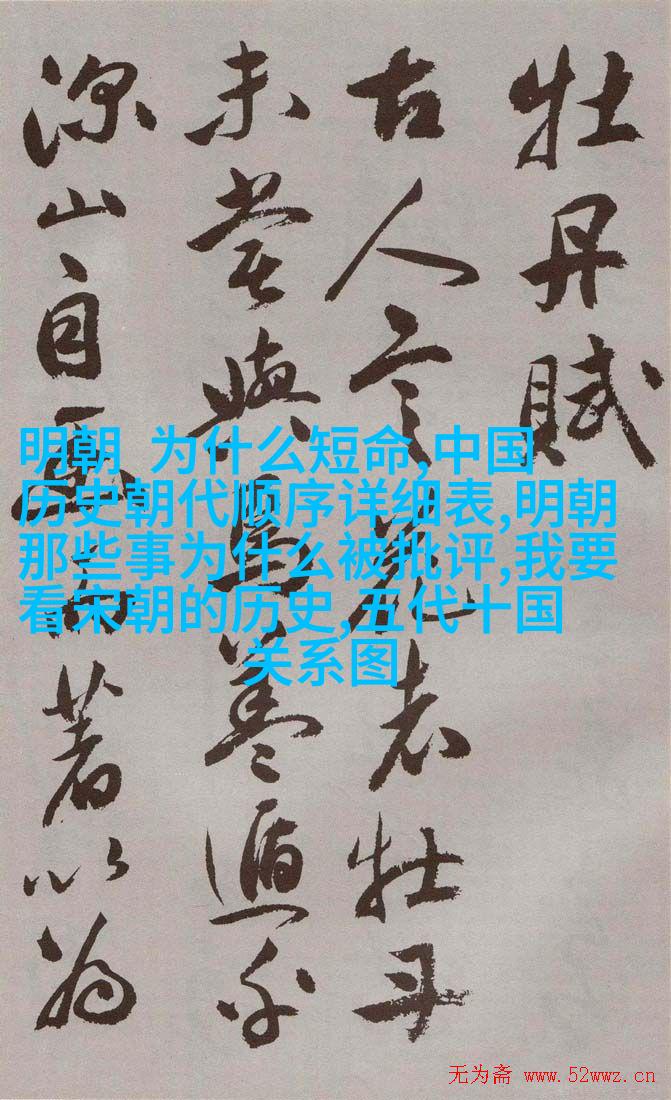 牡丹賦
古人言花者牡丹
未嘗與焉蓋遁乎
深山自幽而著以為
明朝 为什么短命,中国
历史朝代顺序详细表,明朝
那些事为什么被批评,我要
看宋朝的历史,五代十国
关系图
无为斋 www.52wwz.cn